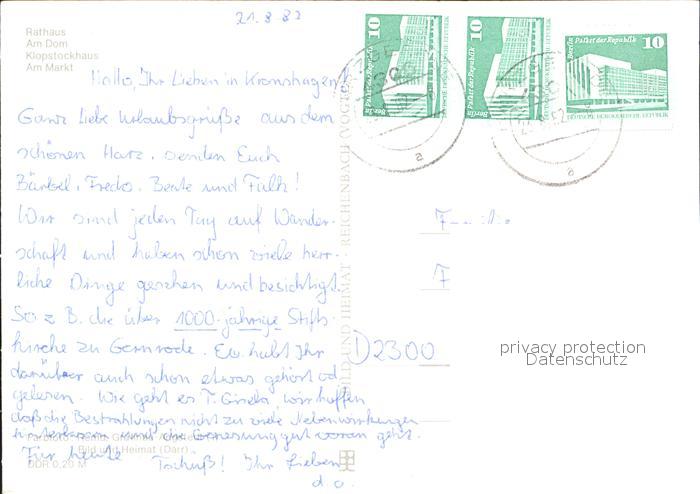 21.8.82
Rathaus
Am Dom
Klopstockhaus
Am Markt
Hallo, Ihr Lieben in Kronshagen!
Ganz liebe Urlaubsgrüße aus dem
schönen Harz, senden Euch
Bärbel, Fredo, Beate und Falk!
Wir sind jeden Tag auf Wander-
schaft und haben schon viele herr-
liche Dinge gesehen und besichtigt.
So z. B. die über 1000-jährige Stifts-
kirche zu Gernrode. Ev. habt Ihr
darüber auch schon etwas gehört od.
gelesen. Wie geht es T. Gisela wir hoffen
daß die Bestrahlungen nicht zu viele Nebenwirkungen
hinterlassen und die Genesung gut voran geht.
Für heute Tschüß! Ihr Lieben
d. o.
Bild und Heimat (Darr)
DDR 0,20 M
BILD UND HEIMAT REICHENBACH (VOGTL
10
Berlin Palast der Republik
DEUTSCHE DEMOKRATISCHE REPUBLIK
10
Berlin Palast der Republik
DEUTSCHE DEMOKRATISCHE REPUBLIK
10
Berlin Palast der Republik
DEUTSCHE DEMOKRATISCHE REPUBLIK
a
a
F
D 2300
privacy protection
Datenschutz